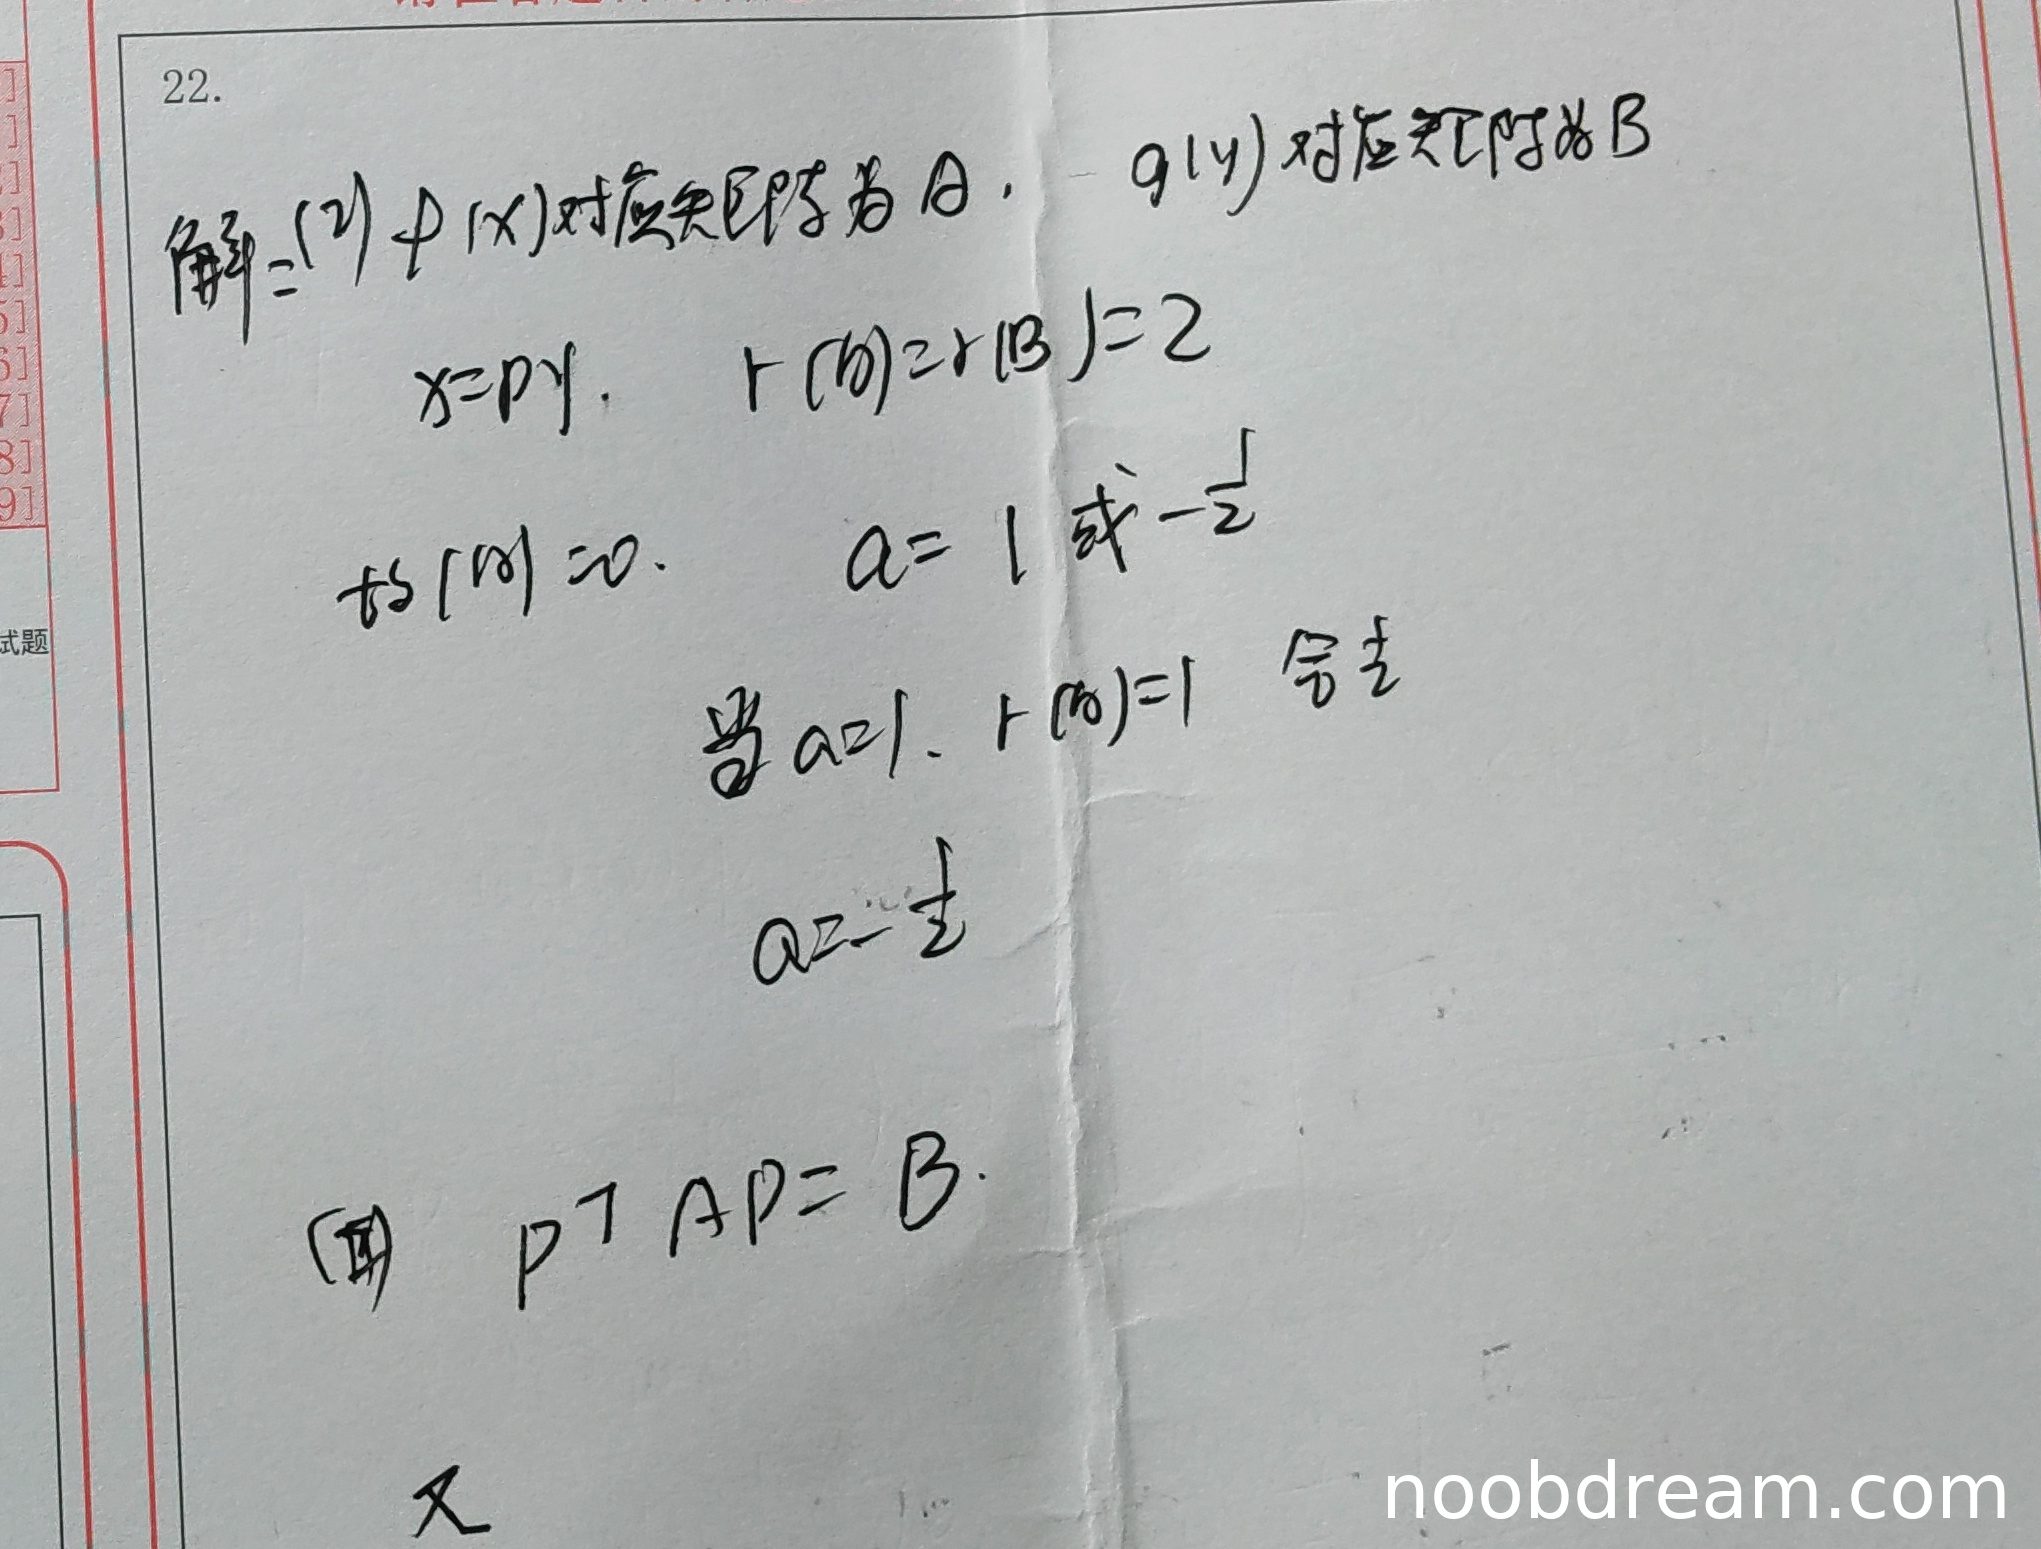 22.
解:(I) f(x)对应矩阵为A. g(y)对应矩阵为B
x=Py. r(A)=r(B)=2
故|A|=0. a=1或-1/2
当a=1. r(A)=1 舍去
a=-1/2
(II) P^T AP=B.
又
试题
5]
6]
7]
8]
9]
noobdream.com